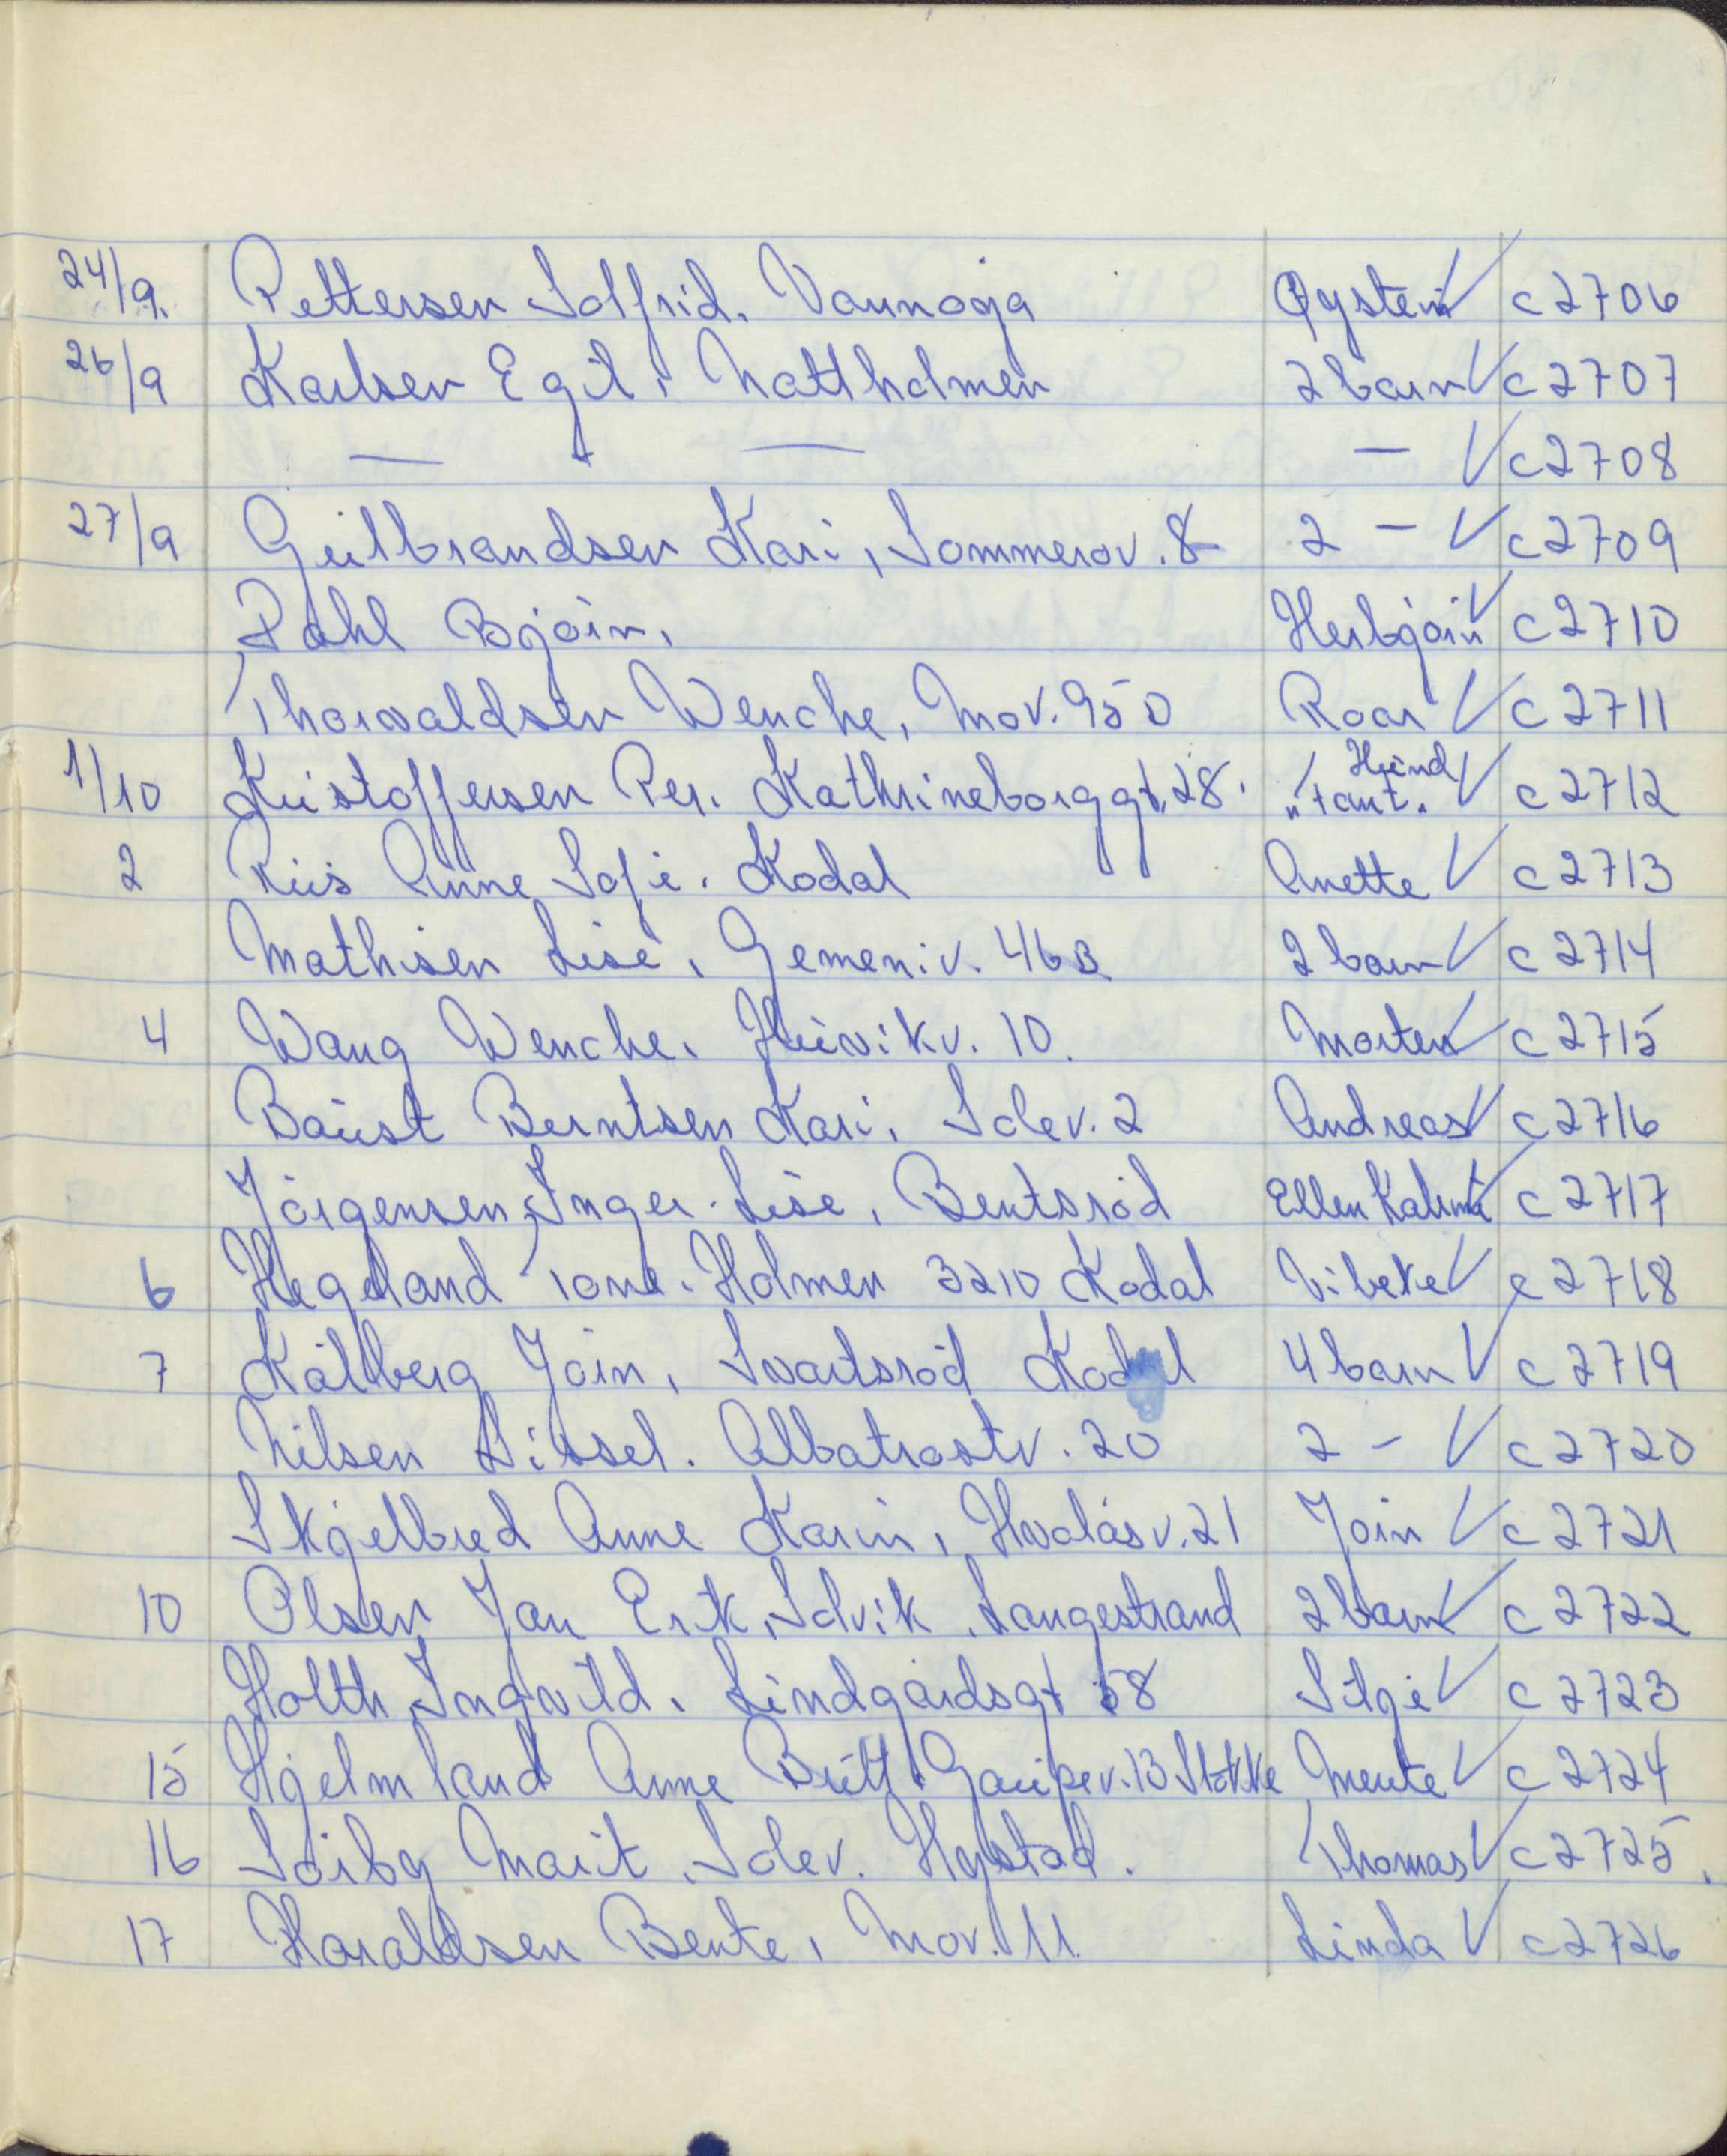 24/9. Pettersen Solfrid. Vannøya Øystein √ c2706
26/9 Karlsen Egil, Nattholmen 2 barn √ c2707
— " — — √ c2708
27/9 Gulbrandsen Kari, Sommerov. 8 2 — √ c2709
Dahl Bjørn, Herbjørn √ c2710
Thorvaldsen Wenche, Mov. 95 D Roar √ c2711
1/10 Kristoffersen Per. Kathrineborggt. 28. Hund "Tant." √ c2712
2 Riis Anne Sofie. Kodal Anette √ c2713
Mathisen Lise, Gemeniv. 46B 2 barn √ c2714
4 Wang Wenche. Huvikv. 10. Morten √ c2715
Baust Berntsen Kari, Solev. 2 Andreas √ c2716
Jørgensen, Inger-Lise, Bentsrød Ellen Katrine √ c2717
6 Hegeland Tone. Holmen 3210 Kodal Vibeke √ c2718
7 Kålberg Jørn, Svartsrød Kodal 4 barn √ c2719
Nilsen Sissel. Albatrostv. 20 2 — √ c2720
Skjelbred Anne Karin, Hvalåsv. 21 Jørn √ c2721
10 Olsen Jan Erik, Solvik, Langestrand 2 barn √ c2722
Holth Ingvild. Lindgårdsgt 58 Silje √ c2723
15 Hjelmland Anne Britt. Gaupev. 13 Stokke Merete √ c2724
16 Sørby Marit. Solev. Hystad. Thomas √ c2725.
17 Haraldsen Bente, Mov. 11. Linda √ c2726